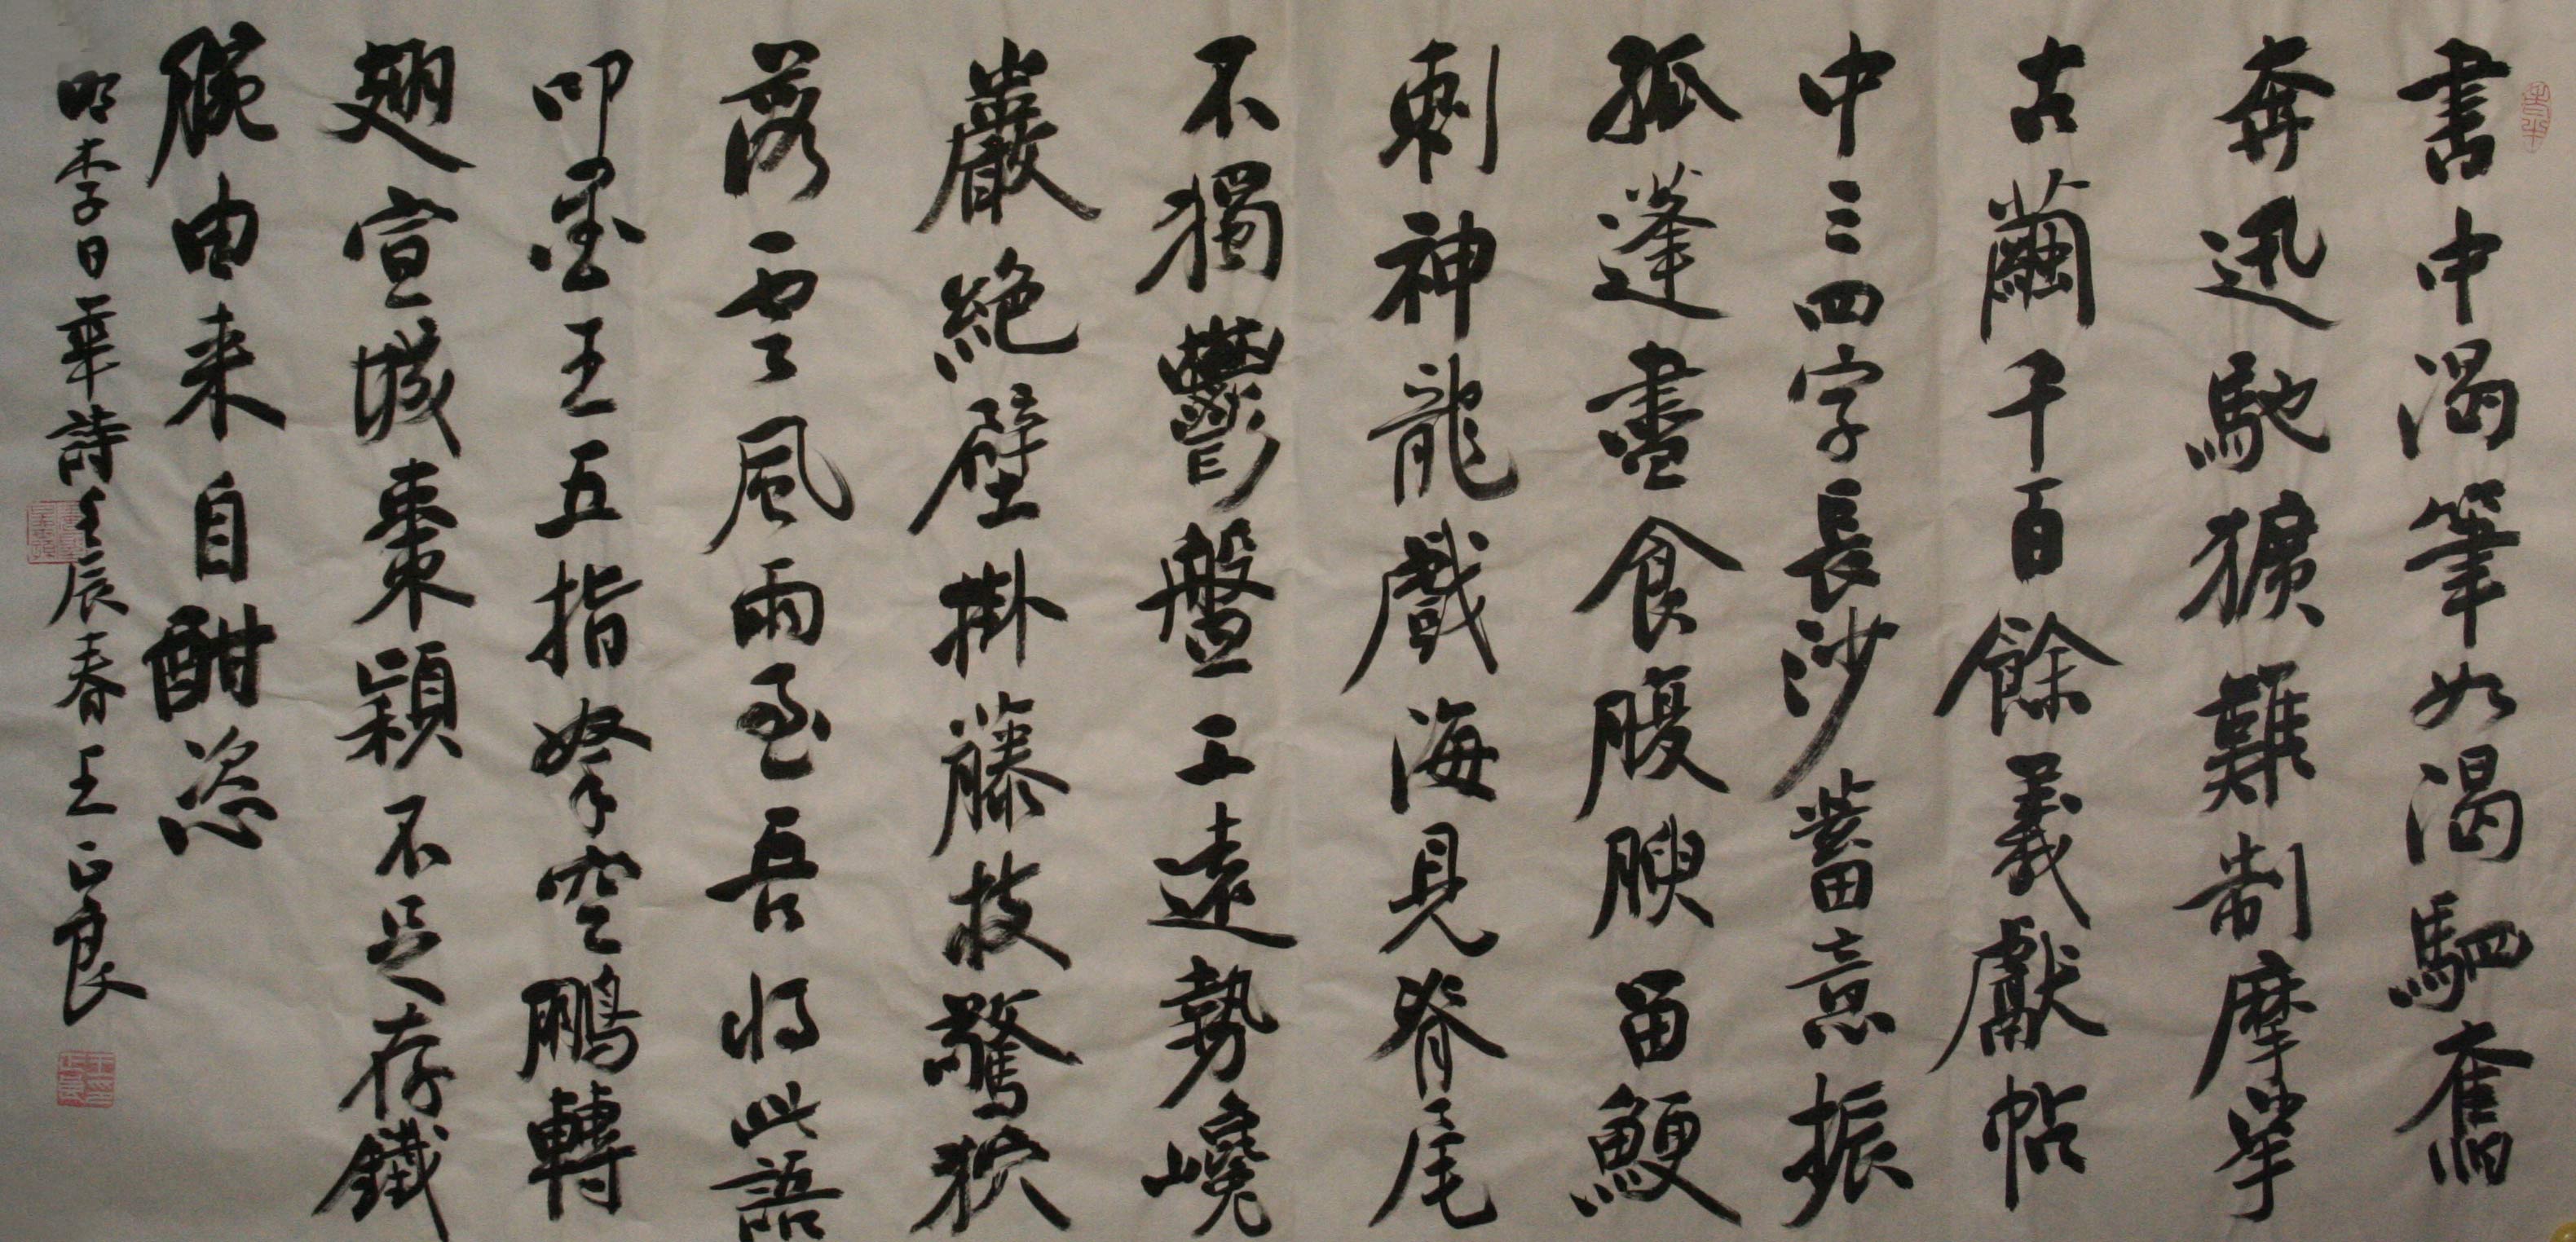 書中渴筆如渴驷奮
奔迅馳獷難制摩挲
古繭千百餘羲獻帖
中三四字長沙蓄意振
孤蓬盡食腹腴留鯁
刺神龍戲海見脊尾
不獨鬱盤工遠勢巉
巖絕壁掛藤枝驚狖
落雲風雨至吾将此語
叩墨王五指拏空鵬轉
翅宣城棗颖不足存鐵
腕由来自酣恣
明李日華詩壬辰春王正良